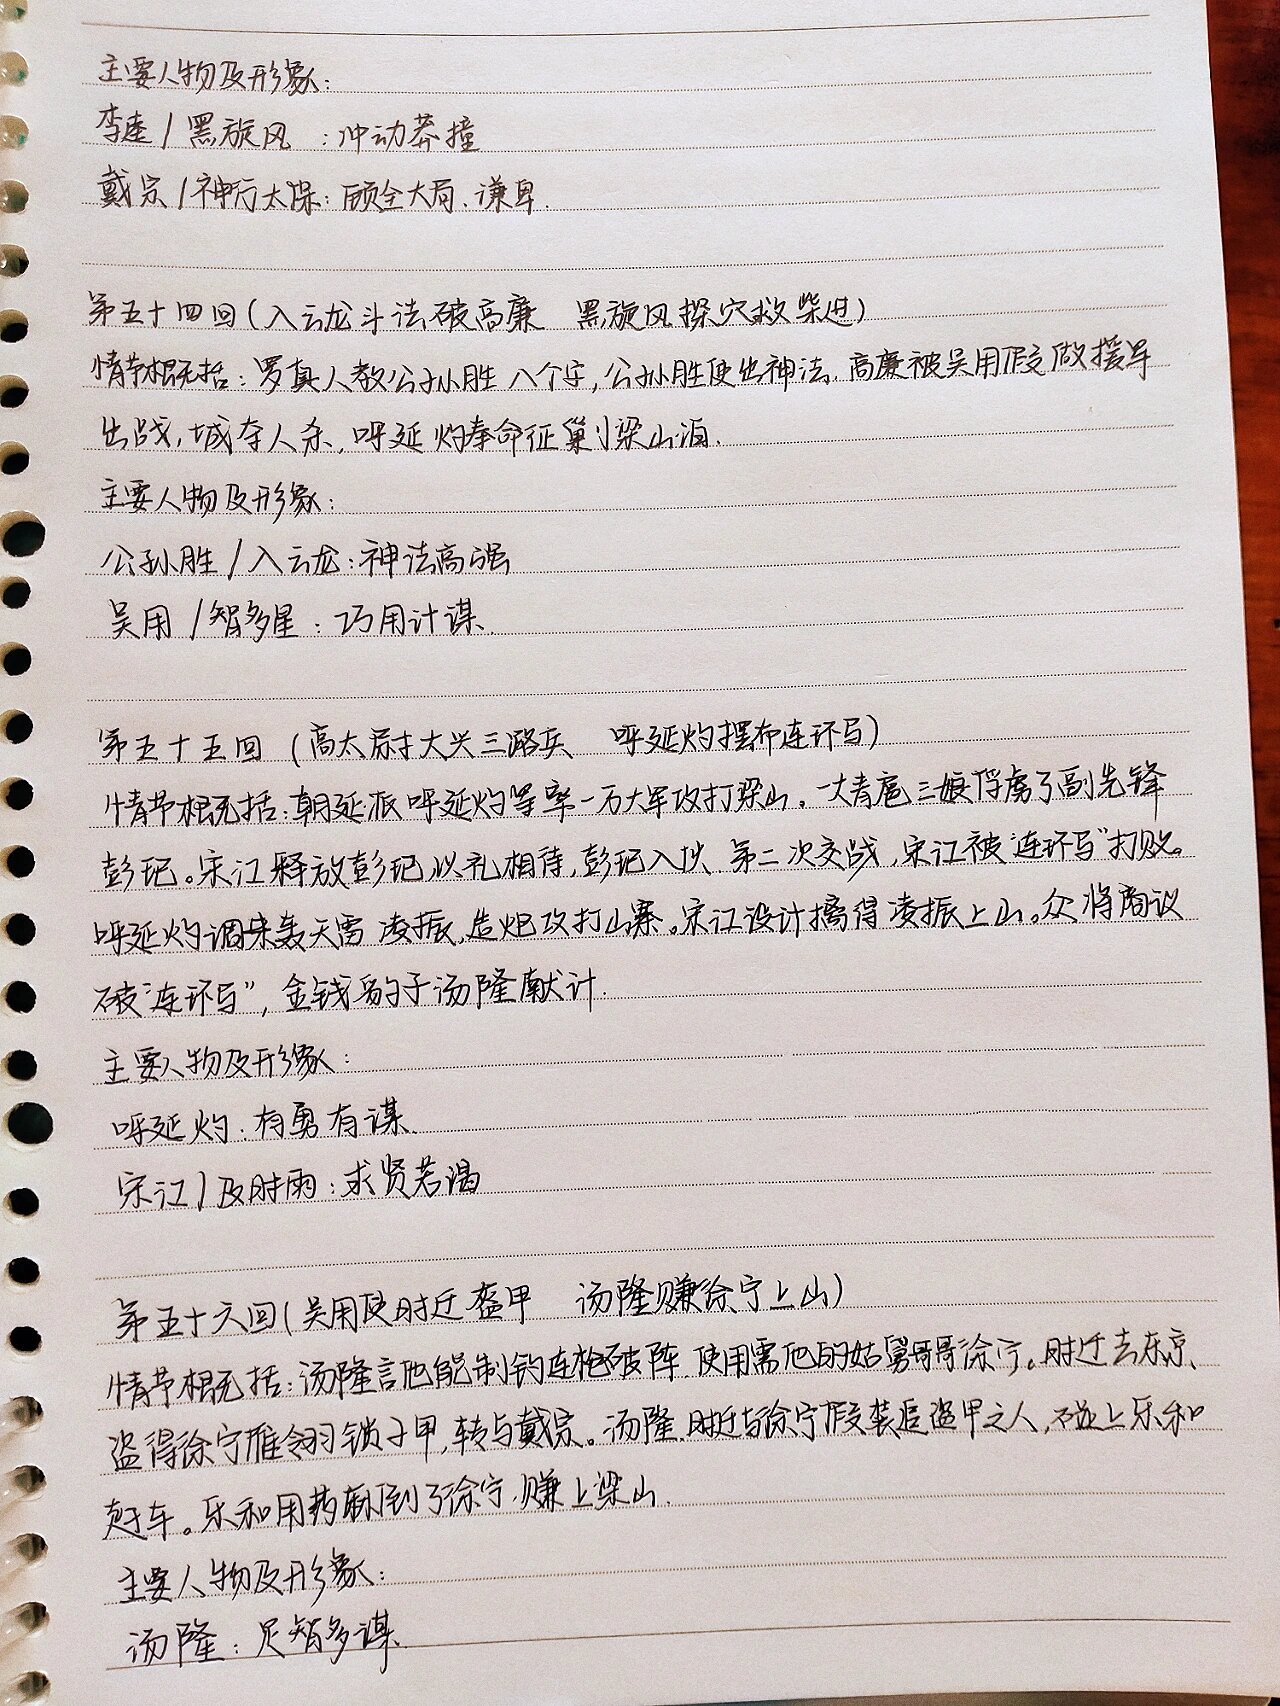 主要人物及形象：
李逵/黑旋风：冲动莽撞
戴宗/神行太保：顾全大局、谦卑.
第五十四回(入云龙斗法破高廉 黑旋风探穴救柴进)
情节概括：罗真人教公孙胜八个字,公孙胜使出神法.高廉被吴用假做援军
出战,城夺人杀.呼延灼奉命征剿梁山泊.
主要人物及形象：
公孙胜/入云龙：神法高强
吴用/智多星：巧用计谋.
第五十五回(高太尉大兴三路兵 呼延灼摆布连环马)
情节概括：朝廷派呼延灼等率一万大军攻打梁山。一丈青扈三娘俘虏了副先锋
彭玘。宋江释放彭玘,以礼相待,彭玘入伙.第二次交战,宋江被“连环马”打败。
呼延灼调来轰天雷凌振,造炮攻打山寨。宋江设计擒得凌振上山。众将商议
破“连环马”,金钱豹子汤隆献计.
主要人物及形象：
呼延灼：有勇有谋.
宋江/及时雨：求贤若渴
第五十六回(吴用使时迁盗甲 汤隆赚徐宁上山)
情节概括：汤隆言他能制钩连枪破阵.使用需他的姑舅哥哥徐宁。时迁去东京、
盗得徐宁雁翎锁子甲,转与戴宗。汤隆.时迁与徐宁假装追盗甲之人,碰上乐和
赶车。乐和用药麻倒了徐宁.赚上梁山.
主要人物及形象：
汤隆：足智多谋.